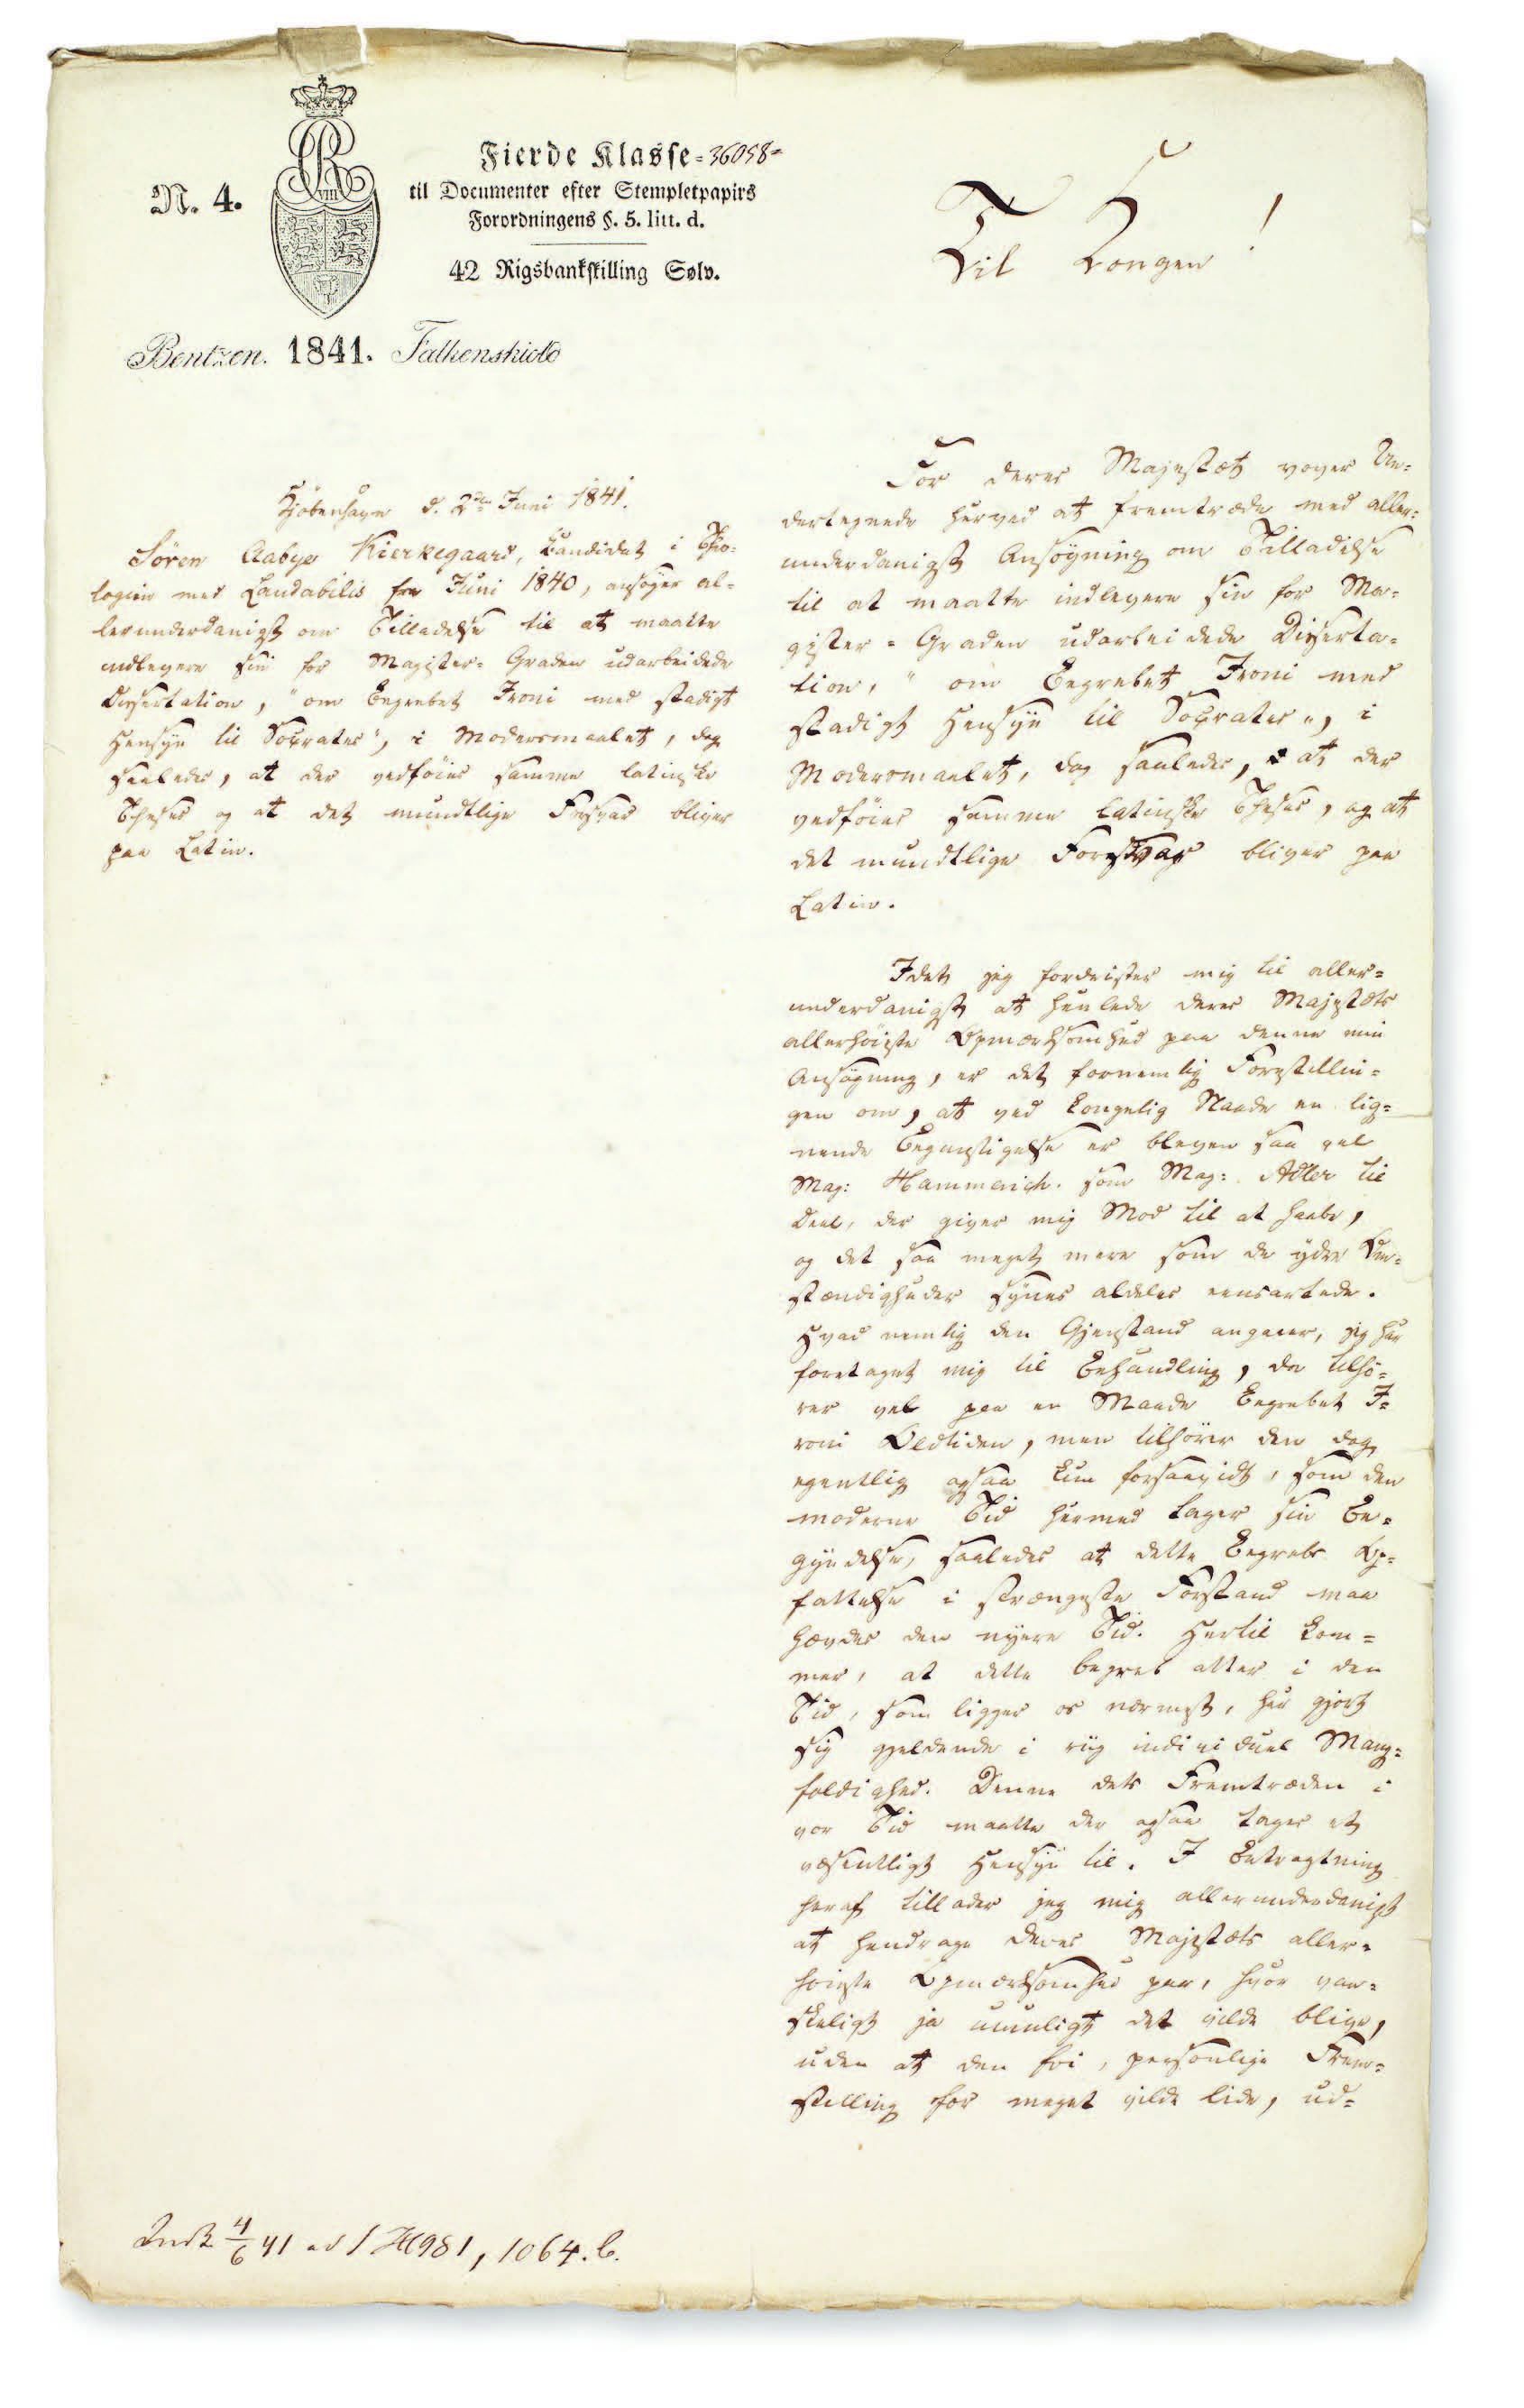 N. 4.
Fierde Klasse = 36058 =
til Documenter efter Stempletpapirs
Forordningens §. 5. litt. d.
42 Rigsbankskilling Sølv.
Bentzen. 1841. Falkenskiold
Kjøbenhavn d. 2den Juni 1841.
Søren Aabye Kierkegaard, Candidat i Theo-
logien med Laudabilis fra Juni 1840, ansøger al-
lerunderdanigst om Tilladelse til at maatte
indlevere sin for Magister-Graden udarbeidede
Dissertation, "om Begrebet Ironi med stadigt
Hensyn til Socrates", i Modersmaalet, dog
saaledes, at der vedføies samme latinske
Theses og at det mundtlige Forsvar bliver
paa Latin.
Indk 4/6 41 ad / 981, 1064. b.
Til Kongen!
For Deres Majestæt vover Un-
dertegnede herved at fremtræde med aller-
underdanigst Ansøgning om Tilladelse
til at maatte indlevere sin for Ma-
gister-Graden udarbeidede Disserta-
tion, "om Begrebet Ironi med
stadigt Hensyn til Socrates", i
Modersmaalet, dog saaledes, at der
vedføies samme latinske Theses, og at
det mundtlige Forsvar bliver paa
Latin.
Idet jeg fordrister mig til aller-
underdanigst at henlede Deres Majestæts
allerhøieste Opmærksomhed paa denne min
Ansøgning, er det fornemlig Forestillin-
gen om, at ved kongelig Naade en lig-
nende Begunstigelse er bleven saa vel
Mag: Hammerich. som Mag: Adler til
Deel, der giver mig Mod til at haabe,
og det saa meget mere som de ydre Om-
stændigheder synes aldeles eensartede.
Hvad nemlig den Gjenstand angaaer, jeg har
foretaget mig til Behandling, da tilhø-
rer vel paa en Maade Begrebet I-
roni Oldtiden, men tilhører den dog
egentlig ogsaa kun forsaavidt, som den
moderne Tid hermed tager sin Be-
gyndelse, saaledes at dette Begrebs Op-
fattelse i strængeste Forstand maa
hævdes den nyere Tid. Hertil kom-
mer, at dette Begreb atter i den
Tid, som ligger os nærmest, har gjort
sig gjeldende i riig individuel Mang-
foldighed. Denne dets Fremtræden i
vor Tid maatte der ogsaa tages et
væsentligt Hensyn til. I Betragtning
heraf tillader jeg mig allerunderdanigst
at hendrage Deres Majestæts aller-
høieste Opmærksomhed paa, hvor van-
skeligt ja umuligt det vilde blive,
uden at den fri, personlige Frem-
stilling for meget vilde lide, ud-